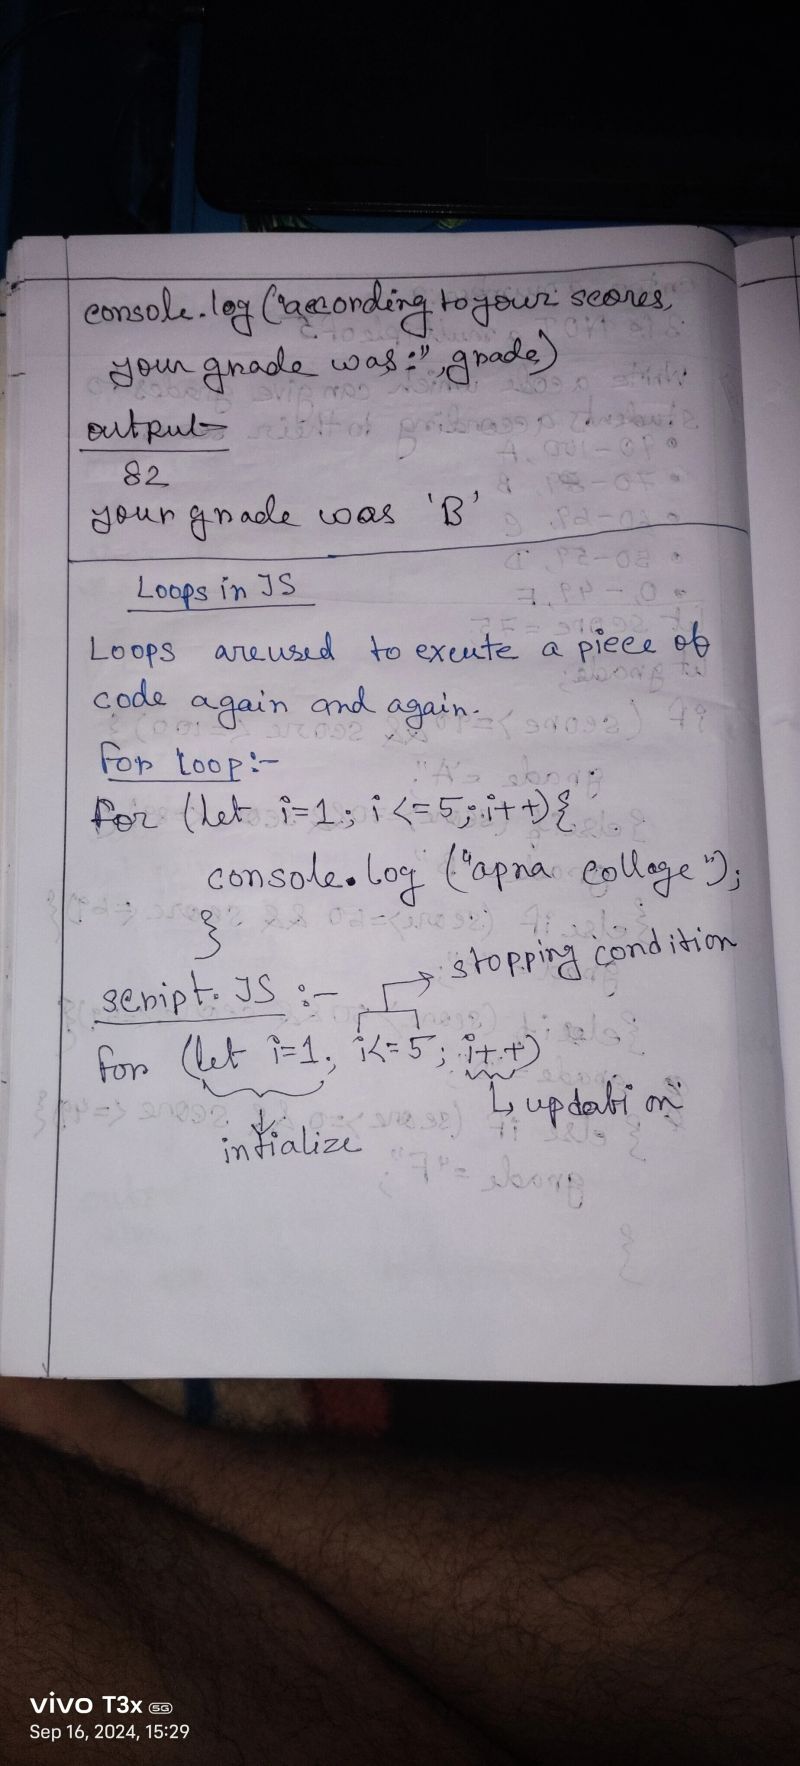 console.log ("according to your scores,
your grade was:", grade)
output
82
your grade was 'B'
Loops in JS
Loops are used to exeute a piece of
code again and again.
For loop:-
For (let i=1; i<=5; i++){
console.log ("apna collage");
}
stopping condition
script.JS :-
for (let i=1; i<=5; i++)
↳ updation
intialize
vivo T3x 5G
Sep 16, 2024, 15:29